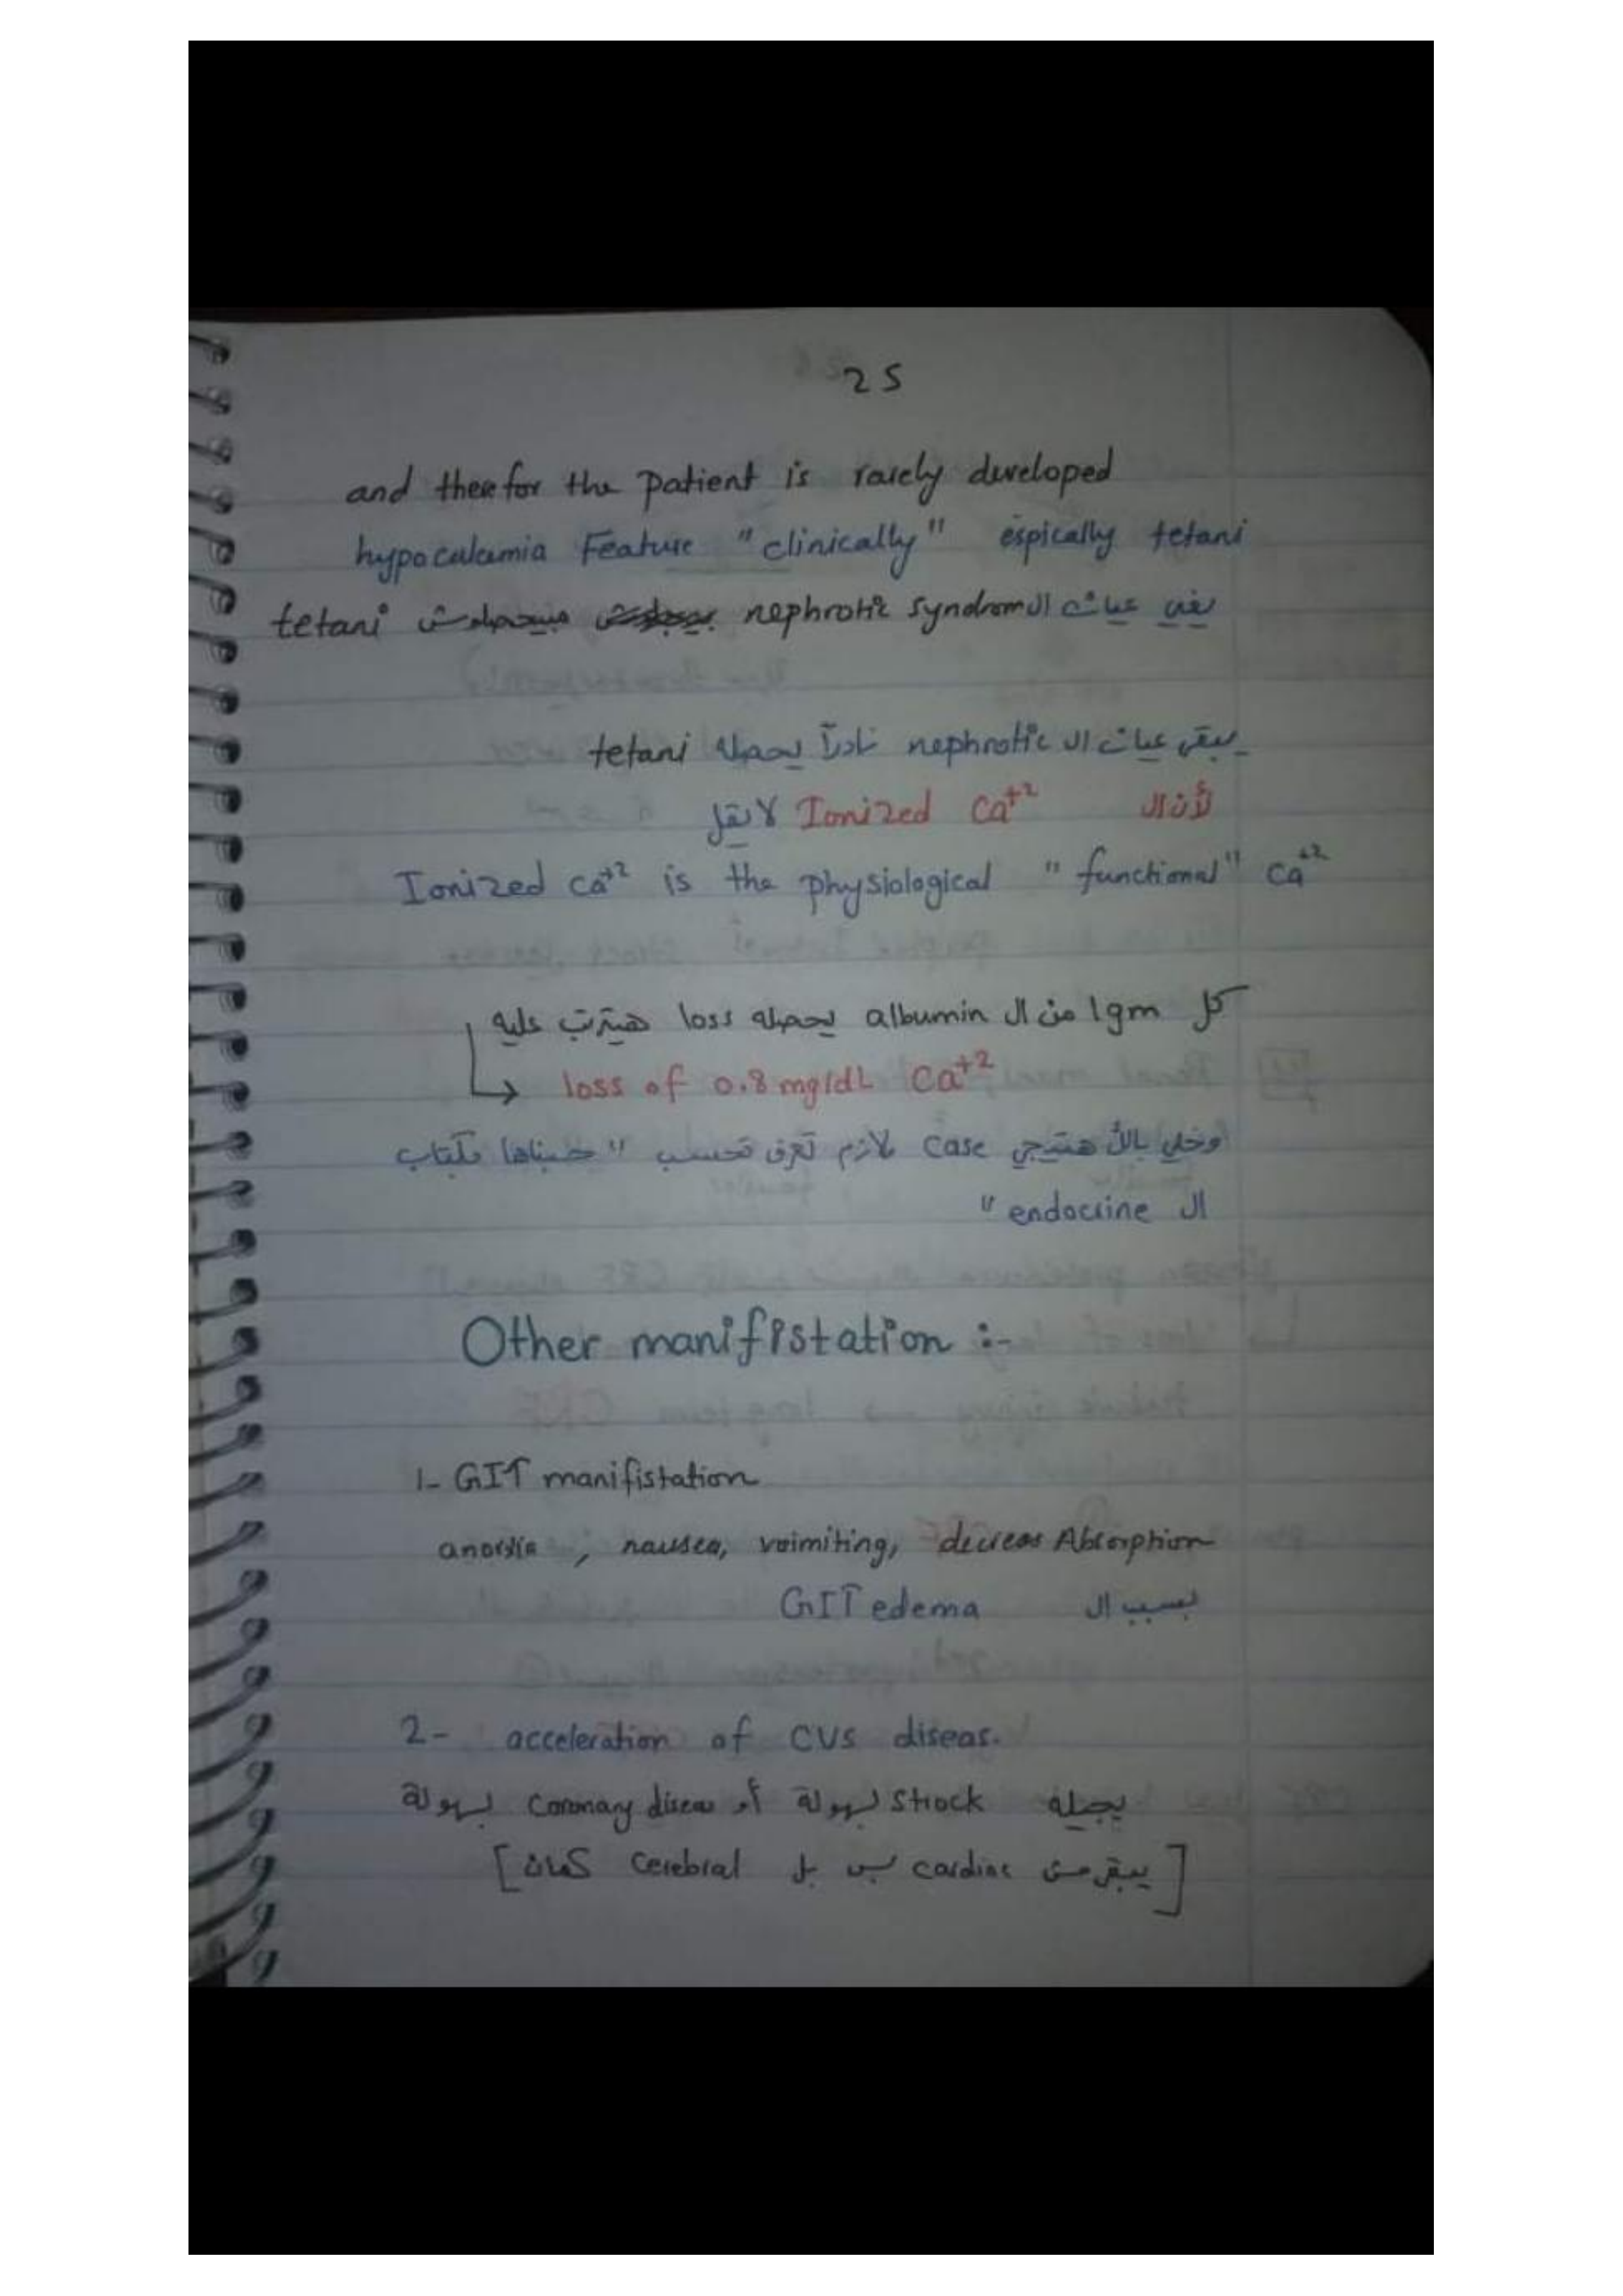 25
and therefor the patient is rarely developed
hypocalcemia Feature "clinically" espically tetani
يعني عيان ال nephrotic syndrom مبيحصلوش tetani
يبقى عيان ال nephrotic نادراً يحصله tetani
لأن ال Ionized Ca+2 لا يقل
Ionized Ca+2 is the physiological "functional" Ca+2
كل 1gm من ال albumin يحصله loss هيترتب عليه
↳ loss of 0.8 mg/dL Ca+2
وخلي بالك هتيجي case لازم تعرف تحسب " حسبناها فكتاب
ال endocrine "
Other manifistation :-
1- GIT manifistation
anorxia , nausea, voimiting, decreas Absorption
بسبب ال GIT edema
2- acceleration of CVS diseas.
يجيله strock بسهولة أو coronary diseas بسهولة
[يبقى مش cardiac بس بل cerebral كمان]